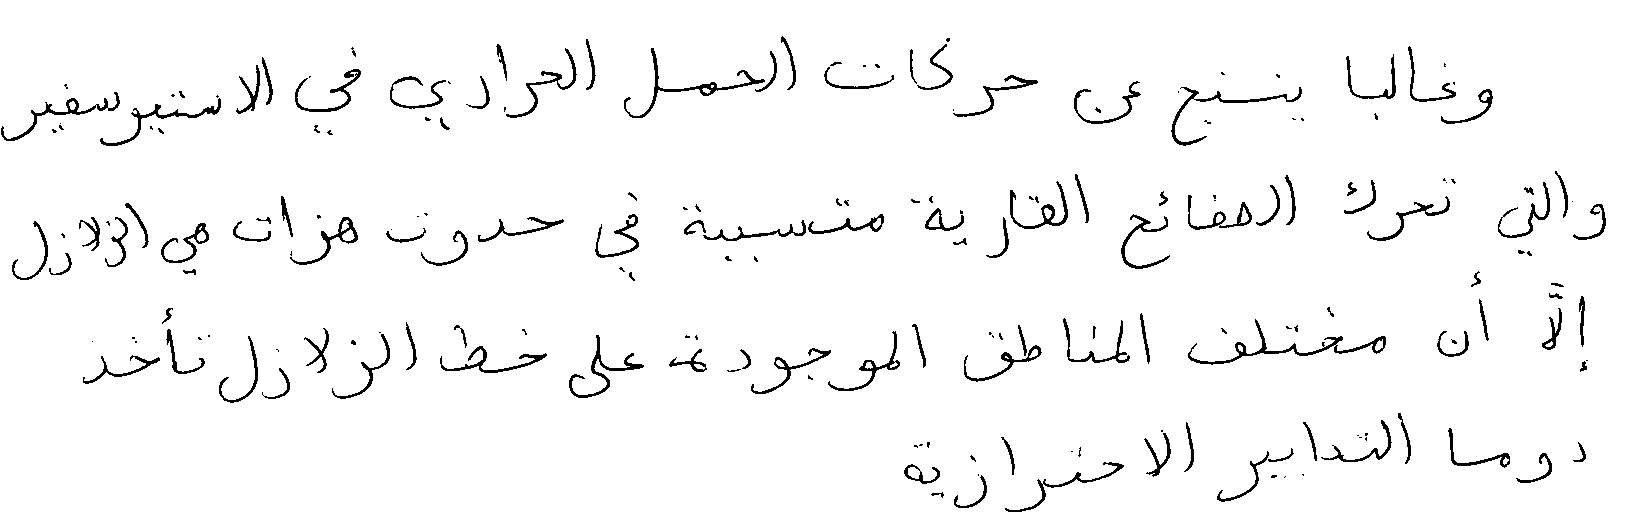 وغالبا ينتج عن حركات الحمل الحراري في الاستيوسفير
والتي تحرك الصفائح القارية متسببة في حدوث هزات هي الزلازل
إلَّا أن مختلف المناطق الموجودة على خط الزلازل تأخذ
دوما التدابير الاحترازية